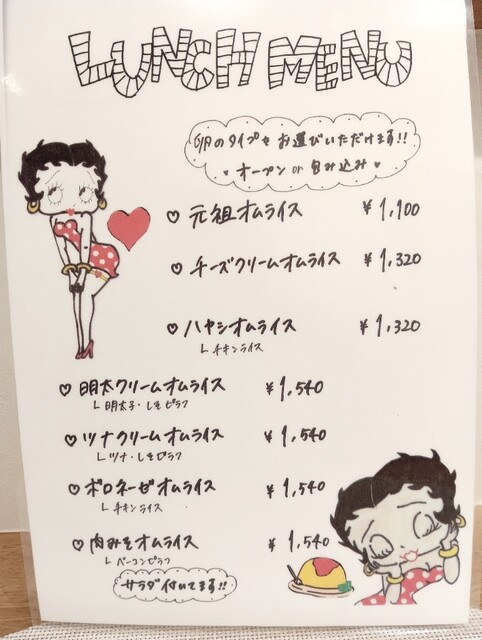 LUNCH MENU
卵のタイプをお選びいただけます!!
・オープン or 包み込み♥
♡ 元祖オムライス ¥1,100
♡ チーズクリームオムライス ¥1,320
♡ ハヤシオムライス ¥1,320
└ チキンライス
♡ 明太クリームオムライス ¥1,540
└ 明太子・しそピラフ
♡ ツナクリームオムライス ¥1,540
└ ツナ・しそピラフ
♡ ボロネーゼオムライス ¥1,540
└ チキンライス
♡ 肉みそオムライス ¥1,540
└ ベーコンピラフ
サラダ付いてます!!